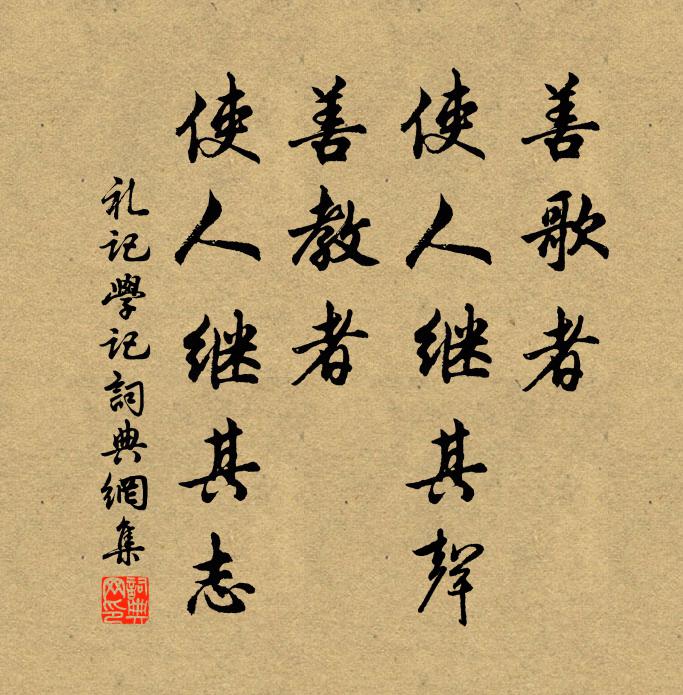 善歌者
使人继其聲
善教者
使人继其志
礼记學记詞典網集
詞典网印